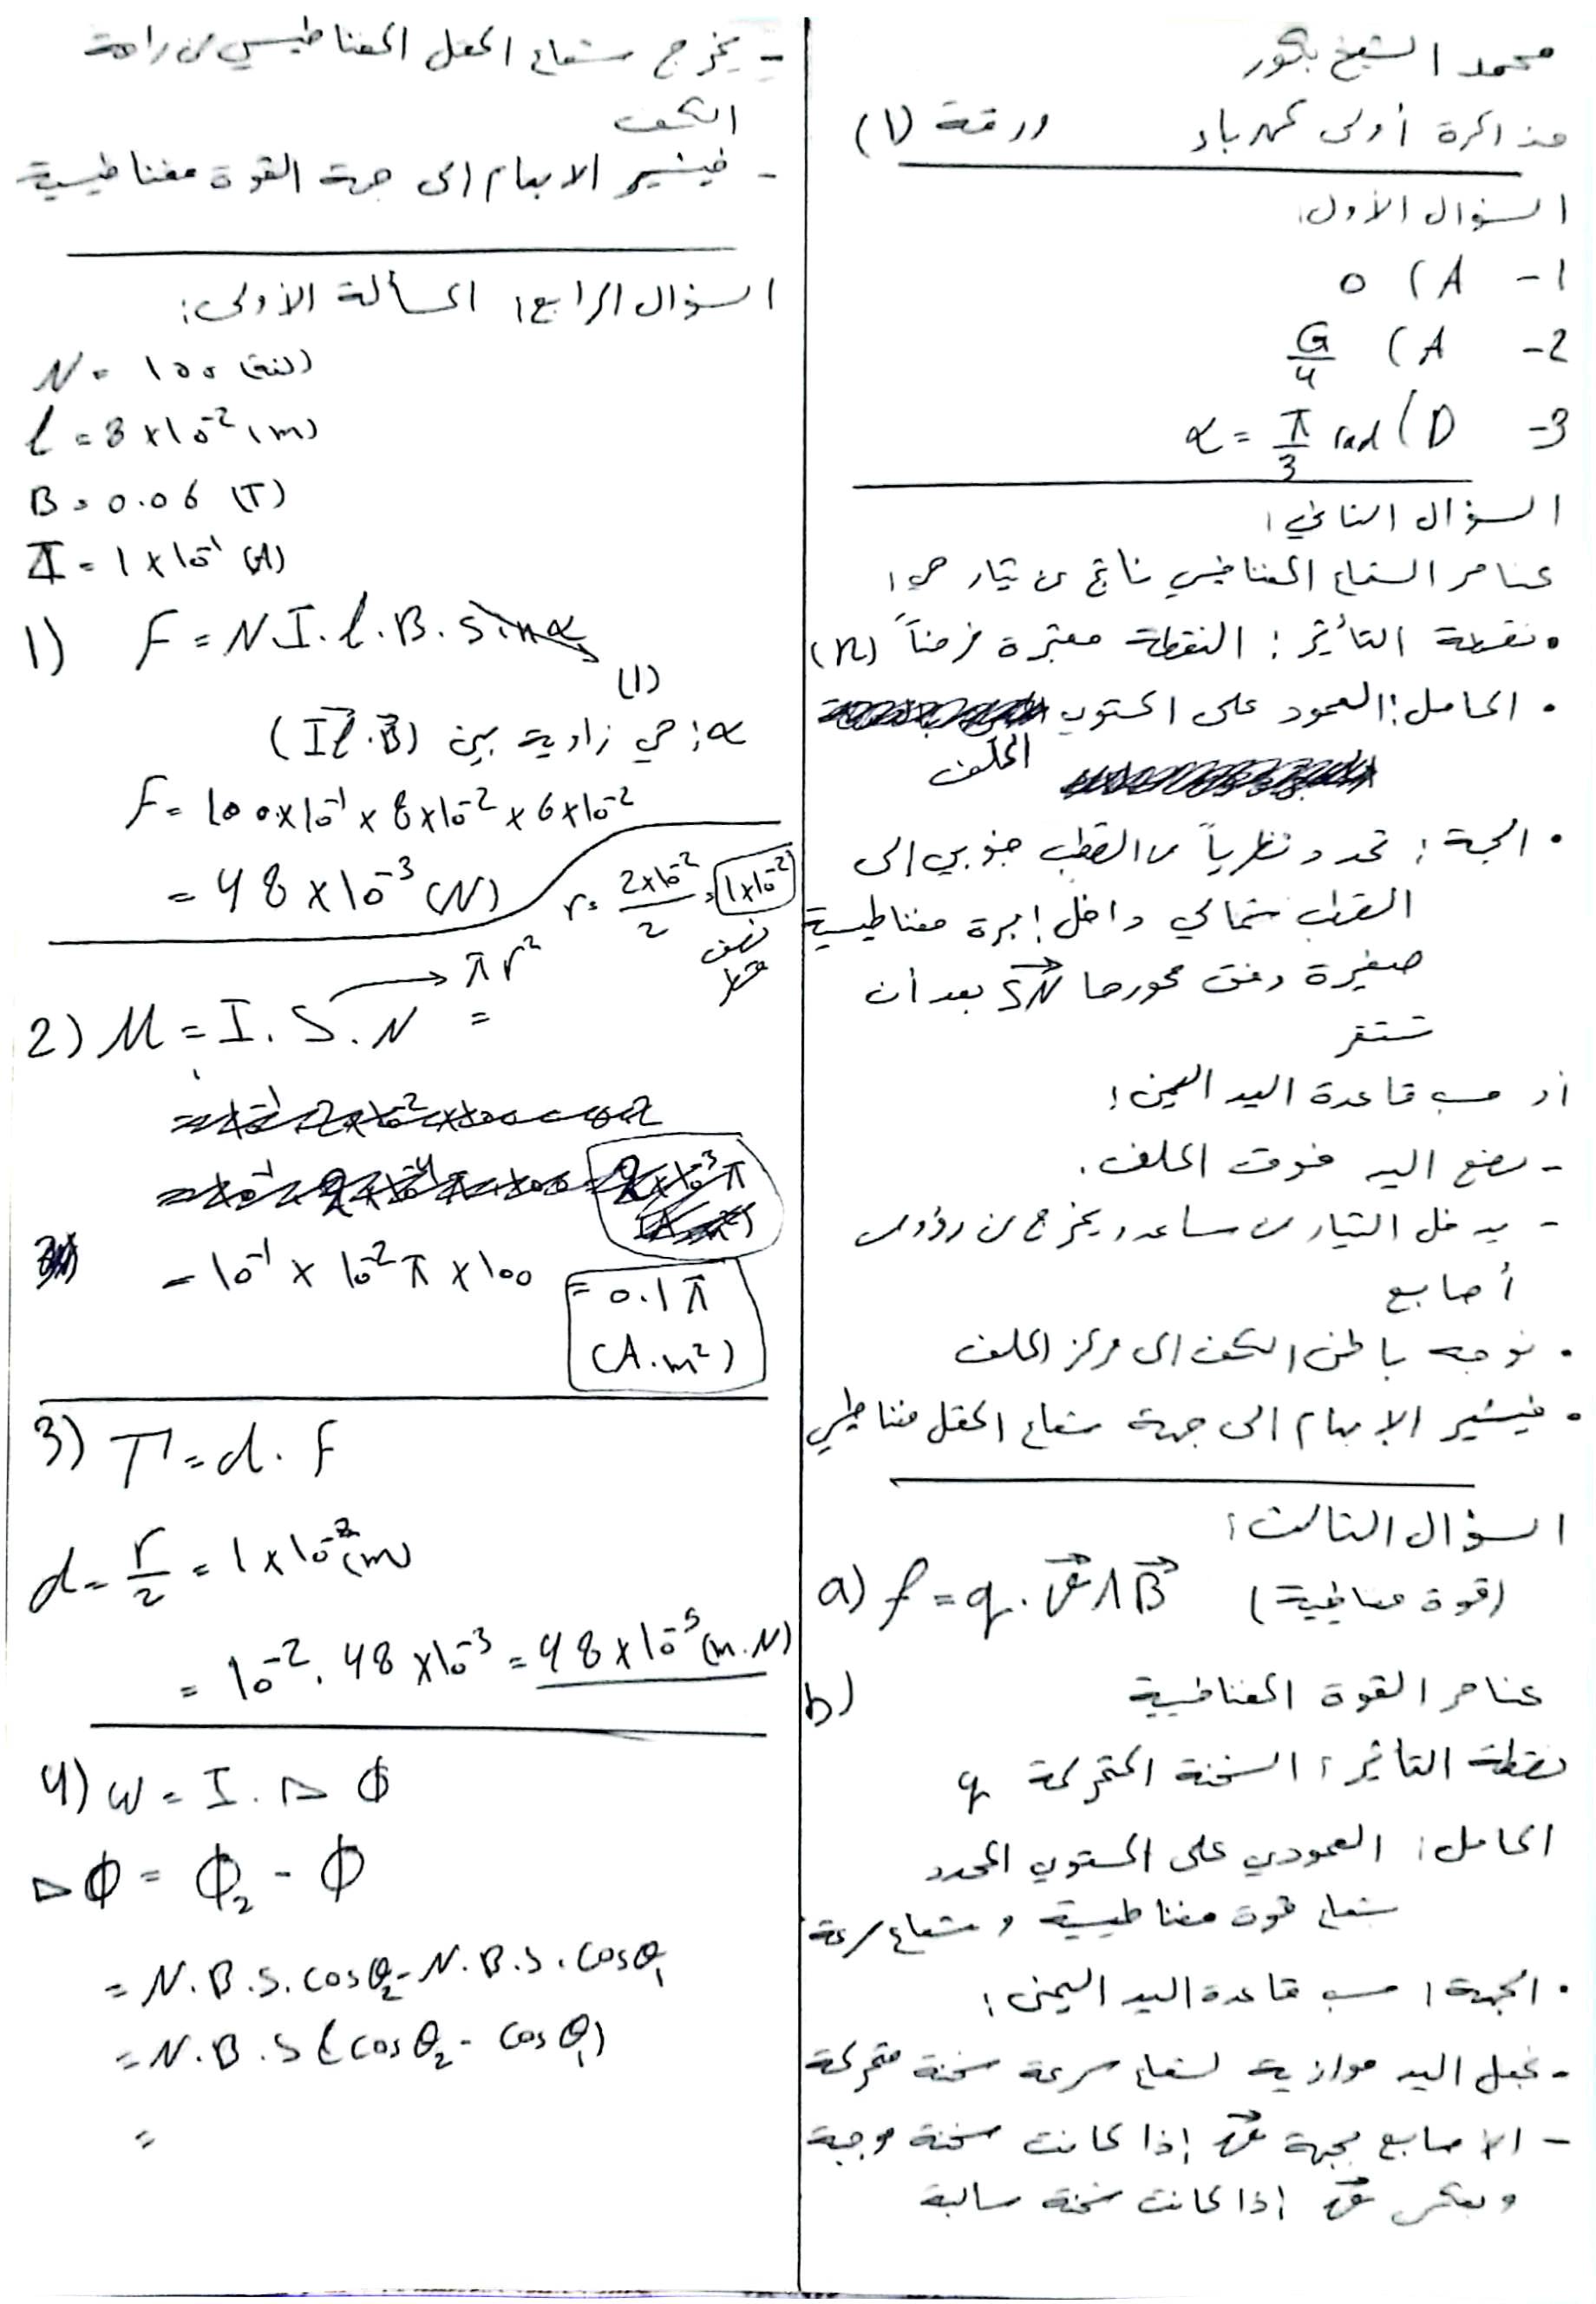 محمد الشيخ بكور
مذاكرة أولى كهرباء ورقة (1)
السؤال الأول:
1- A) 0
2- A) G/4
3- D) α = π/3 rad
السؤال الثاني:
عناصر الشعاع المغناطيسي ناتج عن تيار هي:
• نقطة التأثير: النقطة معتبرة فرضاً (n)
• الحامل: العمود على المستوي
الملف
• الجهة: تحدد نظرياً من القطب جنوبي إلى
القطب شمالي داخل إبرة مغناطيسية
صغيرة وفق محورها SN بعد أن
تستقر
أو حسب قاعدة اليد اليمنى:
- نضع اليد فوق الملف.
- يدخل التيار من ساعد ويخرج من رؤوس
أصابع
• نوجه باطن الكف الى مركز الملف
• فيشير الإبهام الى جهة شعاع الحقل مغناطيسي
السؤال الثالث:
a) f = q. v⃗ Λ B⃗ (قوة مغناطيسية)
b) عناصر القوة المغناطيسية
نقطة التأثير: الشحنة المتحركة q
الحامل: العمودي على المستوي المحدد
شعاع قوة مغناطيسية و شعاع سرعة
• الجهة: حسب قاعدة اليد اليمنى:
- نجعل اليد موازية لشعاع سرعة شحنة متحركة
- الاصابع بجهة v⃗ إذا كانت شحنة موجبة
وبعكس v⃗ إذا كانت شحنة سالبة
- يخرج شعاع الحقل المغناطيسي من راحة
الكف
- فيشير الابهام الى جهة القوة مغناطيسية
السؤال الرابع: المسألة الأولى:
N = 100 (لفة)
l = 8 × 10⁻² (m)
B = 0.06 (T)
I = 1 × 10⁻¹ (A)
1) F = N I. l. B. sin α
(1)
α: هي زاوية بين (I l⃗ . B⃗)
F = 100 × 10⁻¹ × 8 × 10⁻² × 6 × 10⁻²
= 48 × 10⁻³ (N)
r = 2×10⁻²/2 = 1×10⁻²
نصف
قطر
2) M = I. S. N =
π r²
= 10⁻¹ × 10⁻² π × 100 = 0.1 π
(A.m²)
3) Γ = d. F
d = r/2 = 1 × 10⁻² (m)
= 10⁻² . 48 × 10⁻³ = 48 × 10⁻⁵ (m.N)
4) W = I. Δ Φ
Δ Φ = Φ₂ - Φ
= N. B. S. cos θ₂ - N. B. S. cos θ₁
= N. B. S (cos θ₂ - cos θ₁)
=